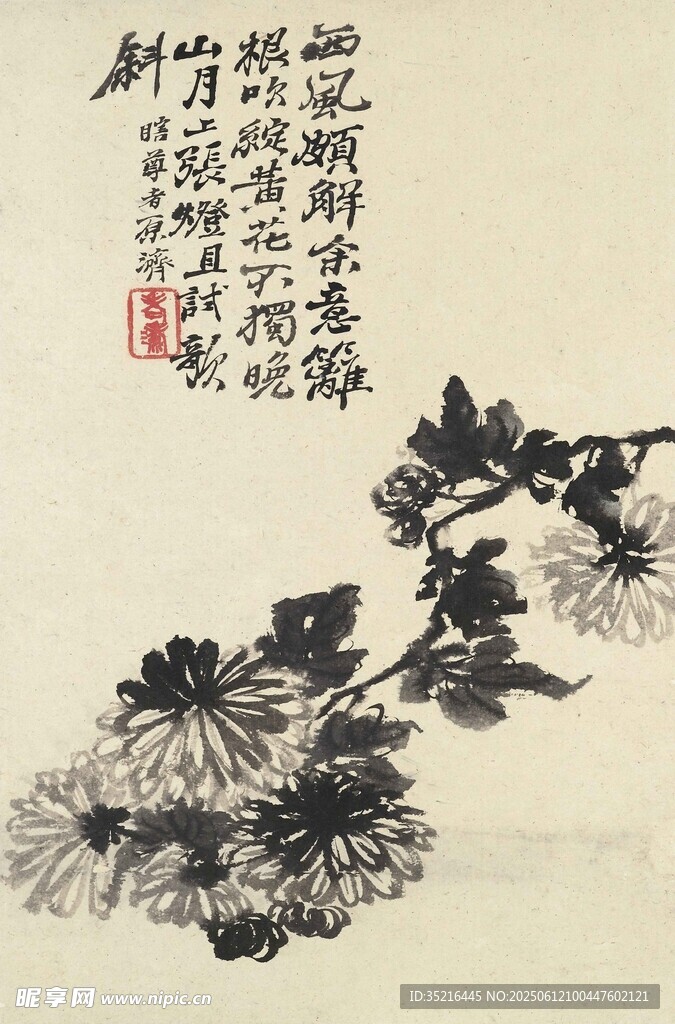 西風頗解余意籬
根吹綻黃花不獨晚
山月上張燈且試歌
斜
瞎尊者原濟
昵享网 www.nipic.cn
ID:35216445 NO:20250612100447602121